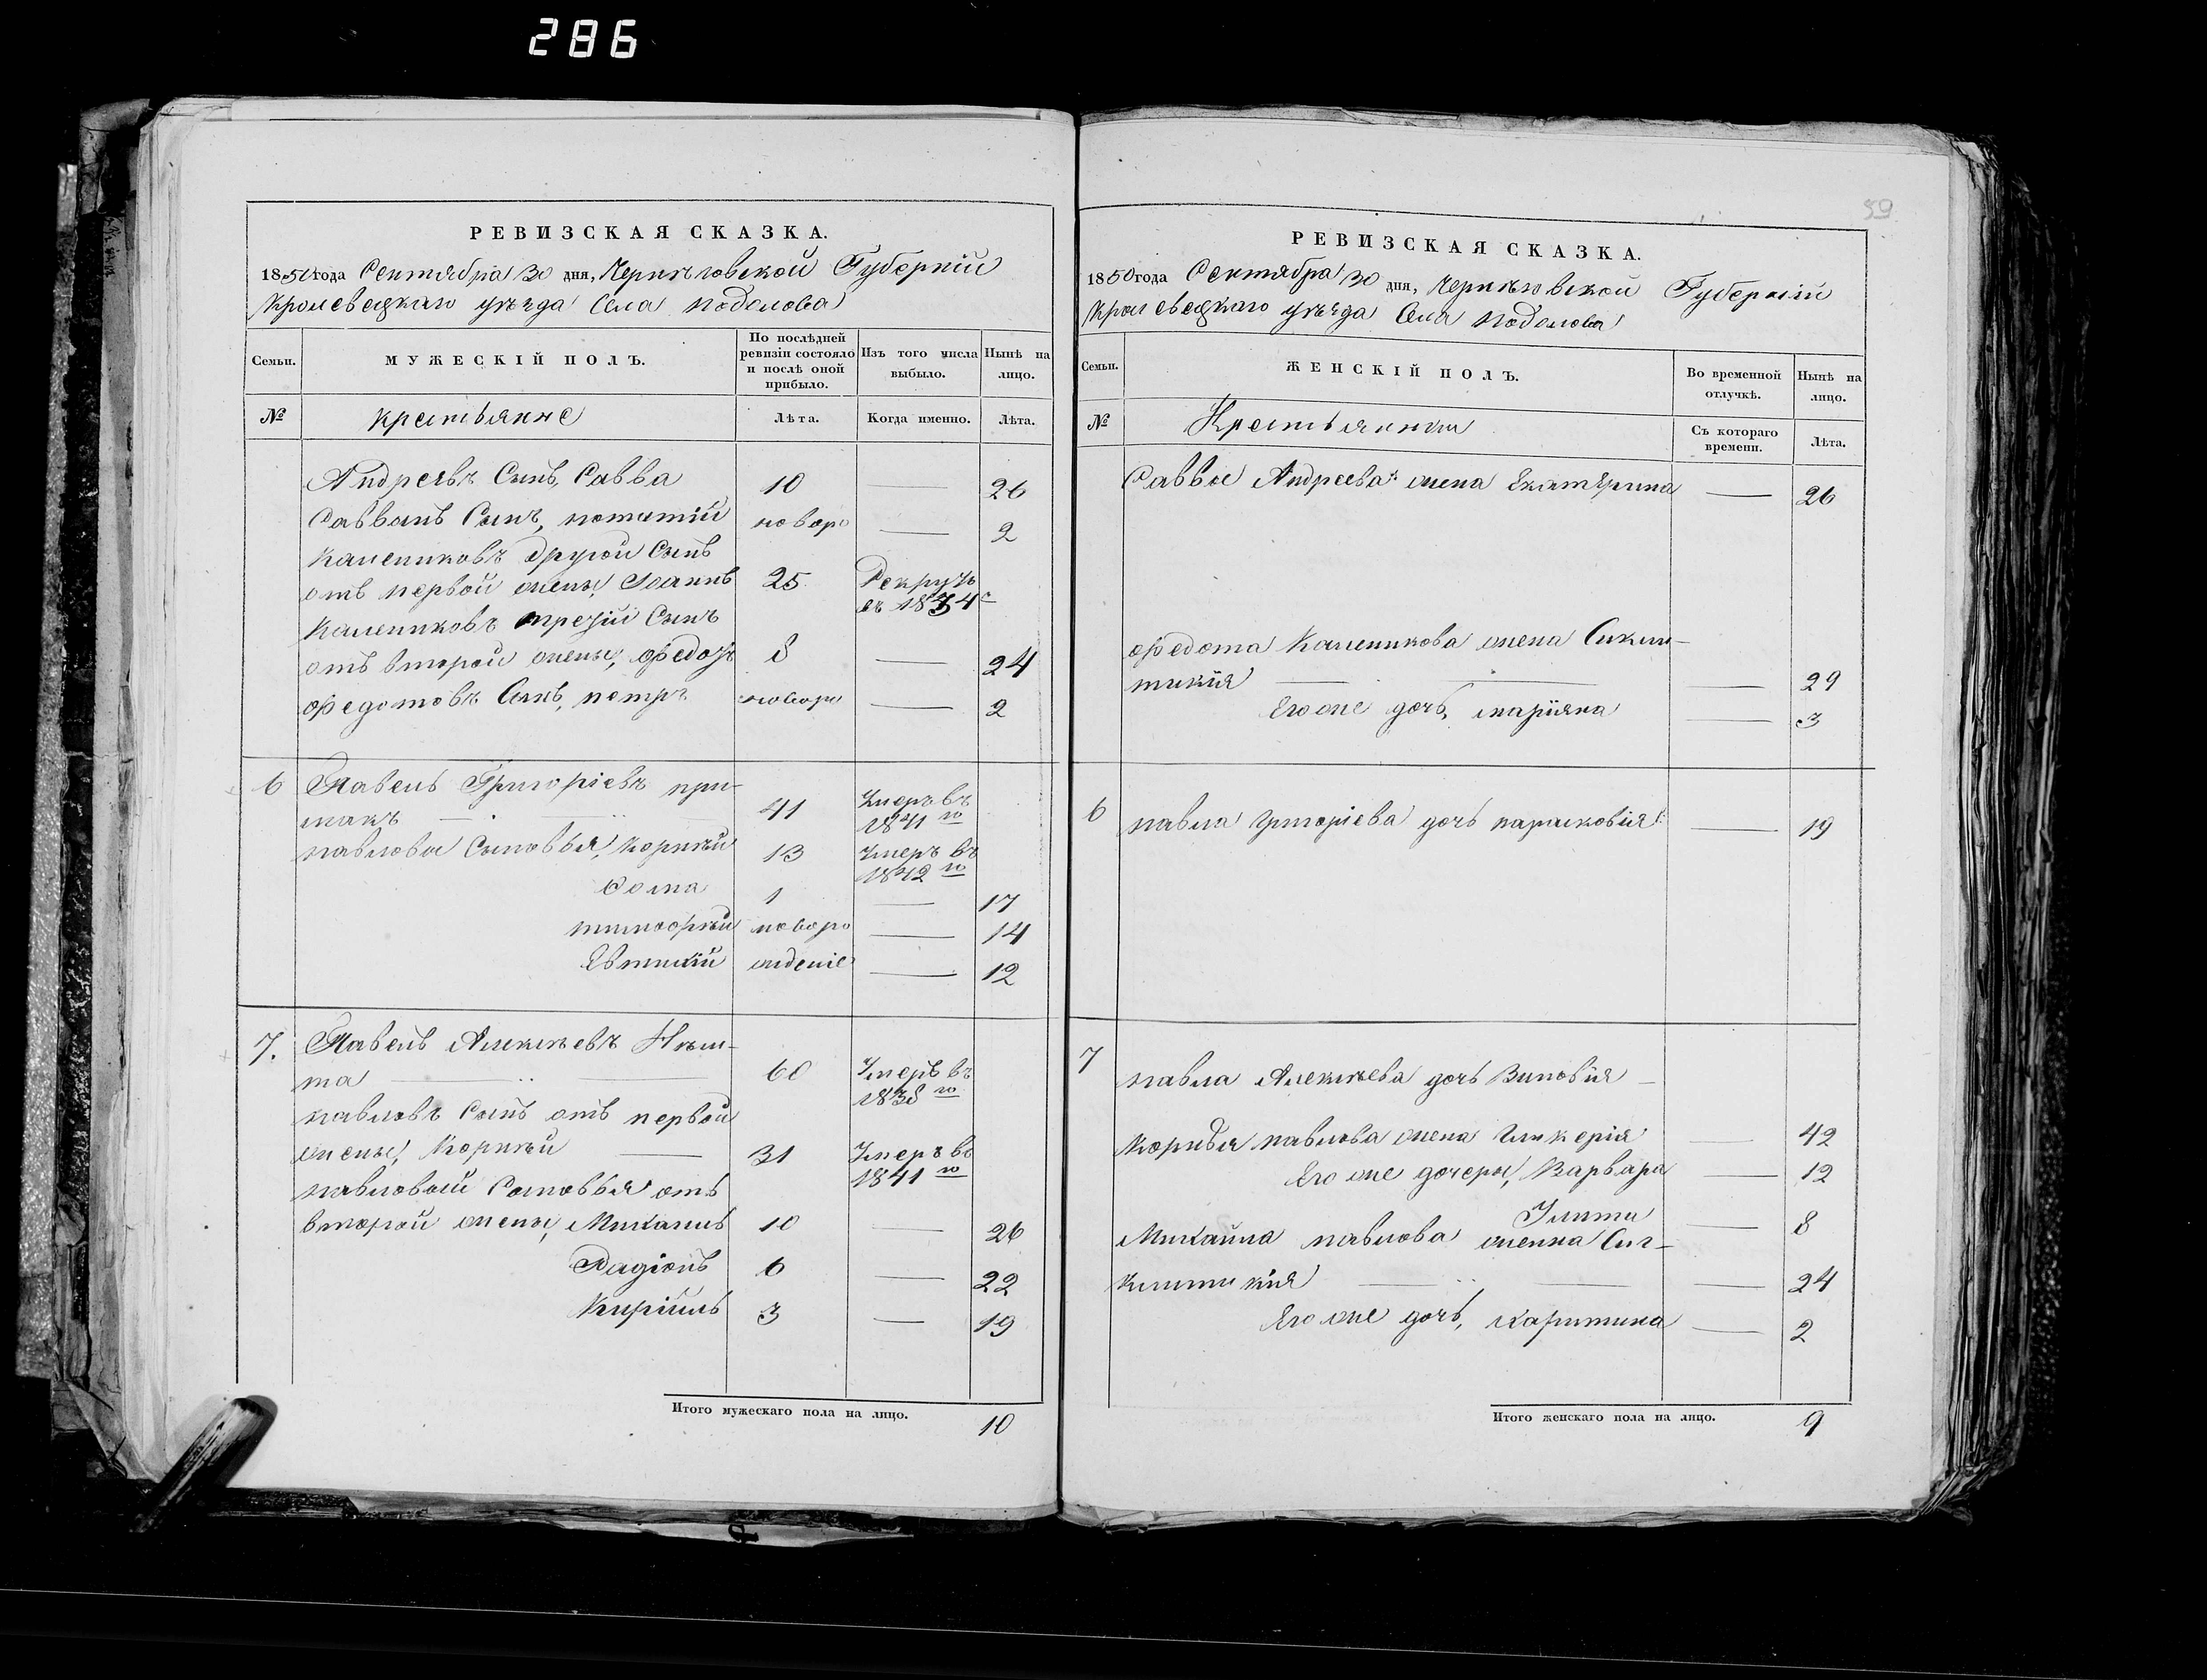 286
РЕВИЗСКАЯ СКАЗКА.
1850 года Сентября 30 дня, Черниговской Губерніи
Кролевецкаго уѣзда Села Подолова
Семьи.
МУЖЕСКІЙ ПОЛЪ.
По послѣдней ревизіи состояло и послѣ оной прибыло.
Изъ того числа выбыло.
Нынѣ на лицо.
№ Крестьяне Лѣта. Когда именно. Лѣта.
Андреявъ Сынъ, Савва 10 — 26
Саввинъ Сынъ, новоро — 2
Калениковъ другой Сынъ
отъ первой жены Іоаннъ 25 Рекрутъ
въ 1834
Калениковъ третій Сынъ
отъ второй жены, Федотъ 8 — 24
Федотовъ Сынъ, петръ новоро — 2
6 Павелъ Григоріевъ при-
макъ 41 Умеръ въ
1841 го
павловы Сыновья, Корнѣй 13 Умеръ въ
1842 го
Фома 1 — 17
тимофѣй новоро — 14
Евтихій жденіе — 12
7. Павелъ Алексѣевъ
та 60 Умеръ въ
1838 го
павловъ Сынъ отъ первой
жены, Корнѣй 31 Умеръ во
1841 го
Сыновья отъ
второй жены, Михаилъ 10 — 26
Радіонъ 6 — 22
Кирііль 3 — 19
Итого мужескаго пола на лицо. 10
59
РЕВИЗСКАЯ СКАЗКА.
1850 года Сентября 30 дня, Черниговской Губерніи
Кролевецкаго уѣзда Села Подолова
Семьи.
ЖЕНСКІЙ ПОЛЪ.
Во временной отлучкѣ.
Нынѣ на лицо.
№ Крестьянки Съ котораго времени. Лѣта.
Саввы Андреева жена Екатерина — 26
Федота Каленикова жена Синкли-
тикія — 29
Его же дочь, маріяна — 3
6 павла Григоріева дочь парасковія — 19
7 павла Алексѣева дочь Зиновія
Корнѣя павлова жена Гликерія — 42
Его же дочери, Варвара — 12
Улита — 8
Михайла павлова женка Син-
клитикія — 24
Его же дочь, харитина — 2
Итого женскаго пола на лицо. 9